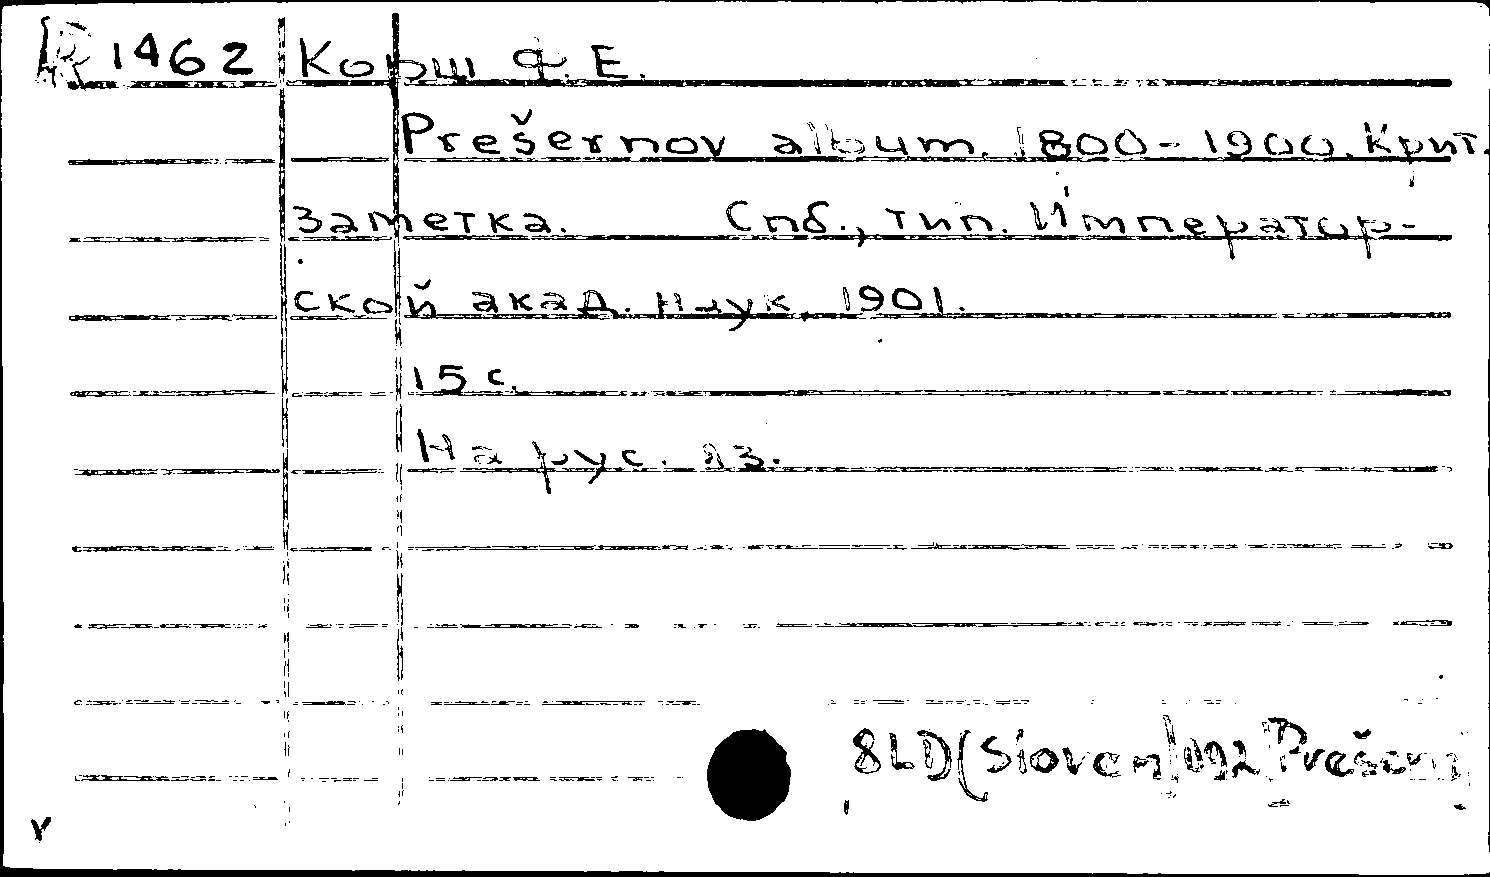 R 1462 Корш Ф. Е.
Prešernov album. 1800-1900. Крит.
заметка. Спб., тип. Император-
ской акад. Наук, 1901.
15 с.
На рус. яз.
8LD(Sloven)092 Prešern
v